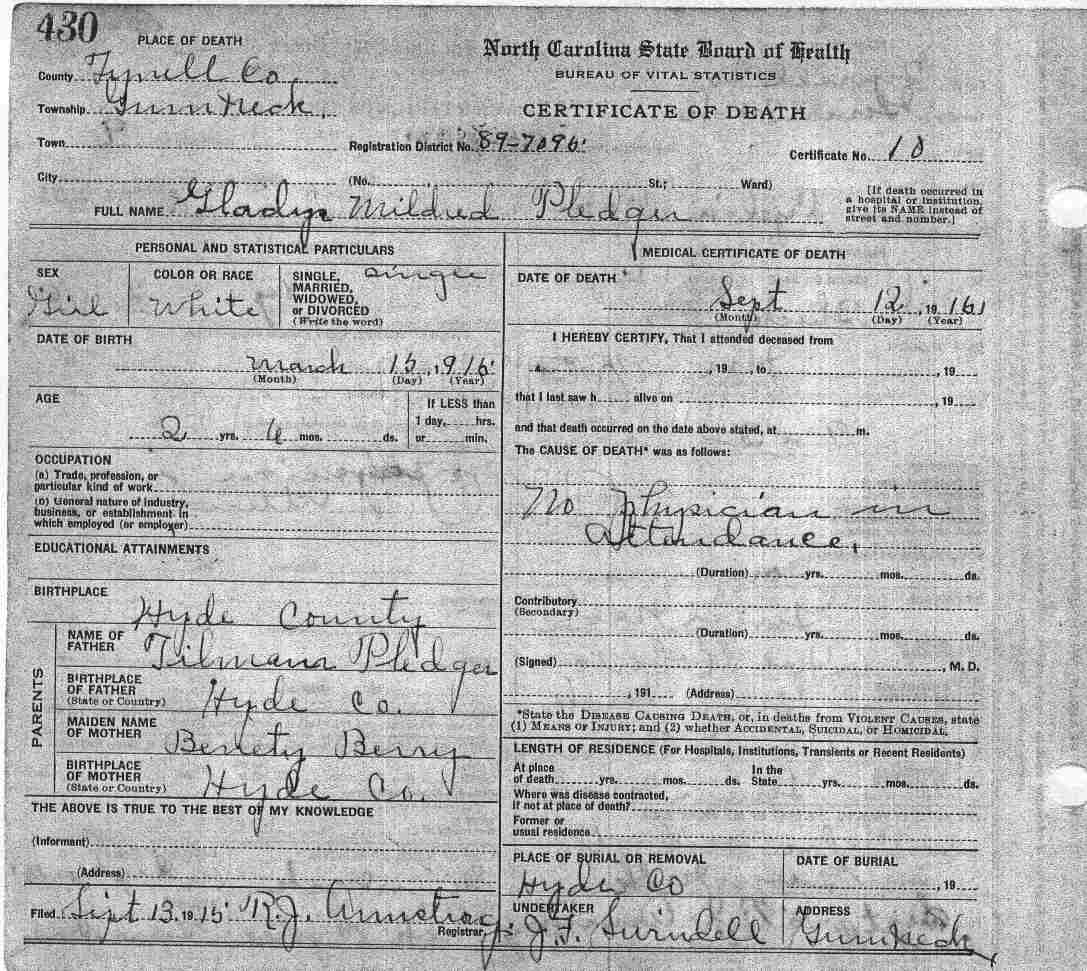 430
PLACE OF DEATH
North Carolina State Board of Health
BUREAU OF VITAL STATISTICS
CERTIFICATE OF DEATH
County Tyrrell Co.
Township Gum Neck.
Town
Registration District No. 89-7096
Certificate No. 10
City (No. St.; Ward)
FULL NAME Gladys Mildred Pledger
[If death occurred in
a hospital or institution,
give its NAME instead of
street and number.]
PERSONAL AND STATISTICAL PARTICULARS
SEX
Girl
COLOR OR RACE
White
SINGLE, single
MARRIED,
WIDOWED,
or DIVORCED
(Write the word)
DATE OF BIRTH
March 15, 1916
(Month) (Day) (Year)
AGE
2 yrs. 6 mos. ds.
If LESS than
1 day, hrs.
or min.
OCCUPATION
(a) Trade, profession, or
particular kind of work
(b) General nature of industry,
business, or establishment in
which employed (or employer)
EDUCATIONAL ATTAINMENTS
BIRTHPLACE
Hyde County
PARENTS
NAME OF
FATHER
Tilmann Pledger
BIRTHPLACE
OF FATHER
(State or Country)
Hyde Co.
MAIDEN NAME
OF MOTHER
Berry
BIRTHPLACE
OF MOTHER
(State or Country)
Hyde Co.
THE ABOVE IS TRUE TO THE BEST OF MY KNOWLEDGE
(Informant)
(Address)
Filed Sept. 13, 1915 R.J. Armstrong
Registrar.
MEDICAL CERTIFICATE OF DEATH
DATE OF DEATH
Sept 12, 1916
(Month) (Day) (Year)
I HEREBY CERTIFY, That I attended deceased from
, 19 , to , 19
that I last saw h alive on , 19
and that death occurred on the date above stated, at m.
The CAUSE OF DEATH* was as follows:
No physician in
attendance.
(Duration) yrs. mos. ds.
Contributory
(Secondary)
(Duration) yrs. mos. ds.
(Signed) , M. D.
, 191 (Address)
*State the DISEASE CAUSING DEATH, or, in deaths from VIOLENT CAUSES, state
(1) MEANS OF INJURY; and (2) whether ACCIDENTAL, SUICIDAL, or HOMICIDAL.
LENGTH OF RESIDENCE (For Hospitals, Institutions, Transients or Recent Residents)
At place
of death yrs. mos. ds.
In the
State yrs. mos. ds.
Where was disease contracted,
if not at place of death?
Former or
usual residence
PLACE OF BURIAL OR REMOVAL
Hyde Co
DATE OF BURIAL
, 19
UNDERTAKER
J. F. Swindell
ADDRESS
Gum Neck